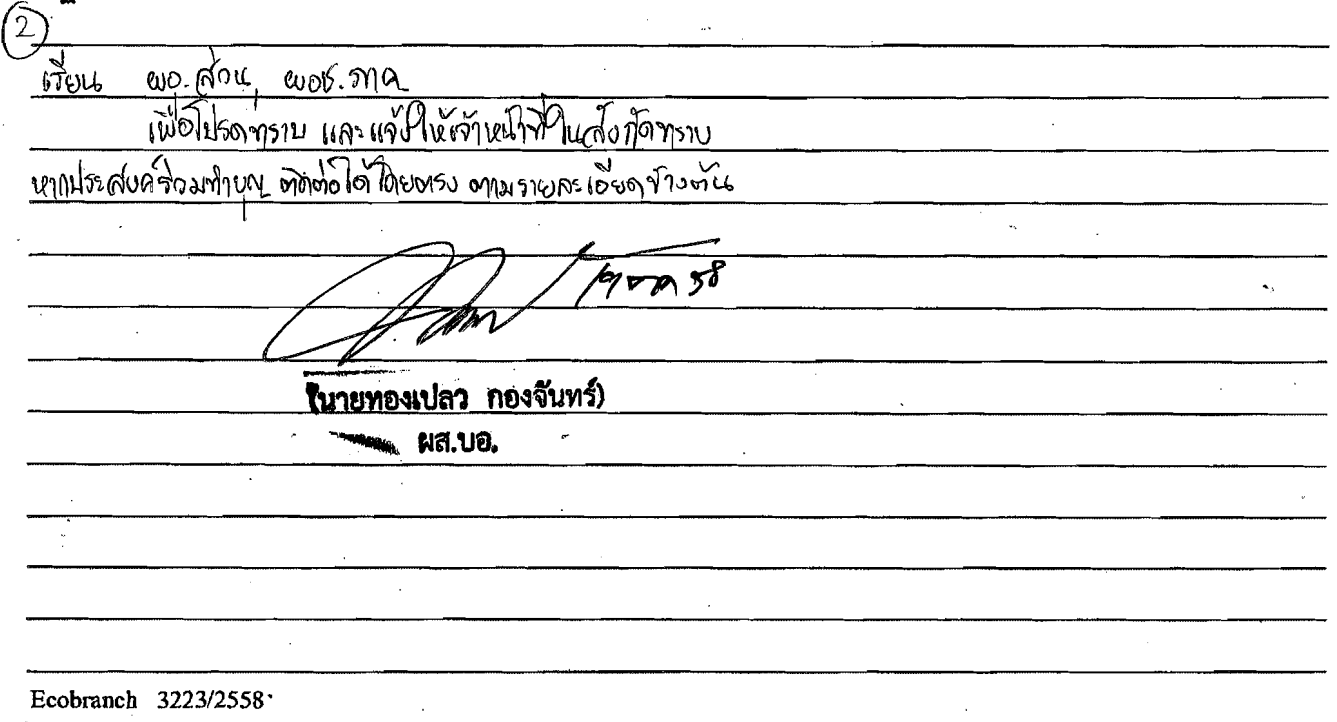 2
เรียน ผอ.ส่วน, ผอช.ภาค
เพื่อโปรดทราบ และแจ้งให้เจ้าหน้าที่ในสังกัดทราบ
หากประสงค์ร่วมทำบุญ ติดต่อได้โดยตรง ตามรายละเอียดข้างต้น
58
(นายทองเปลว กองจันทร์)
ผส.บอ.
Ecobranch 3223/2558